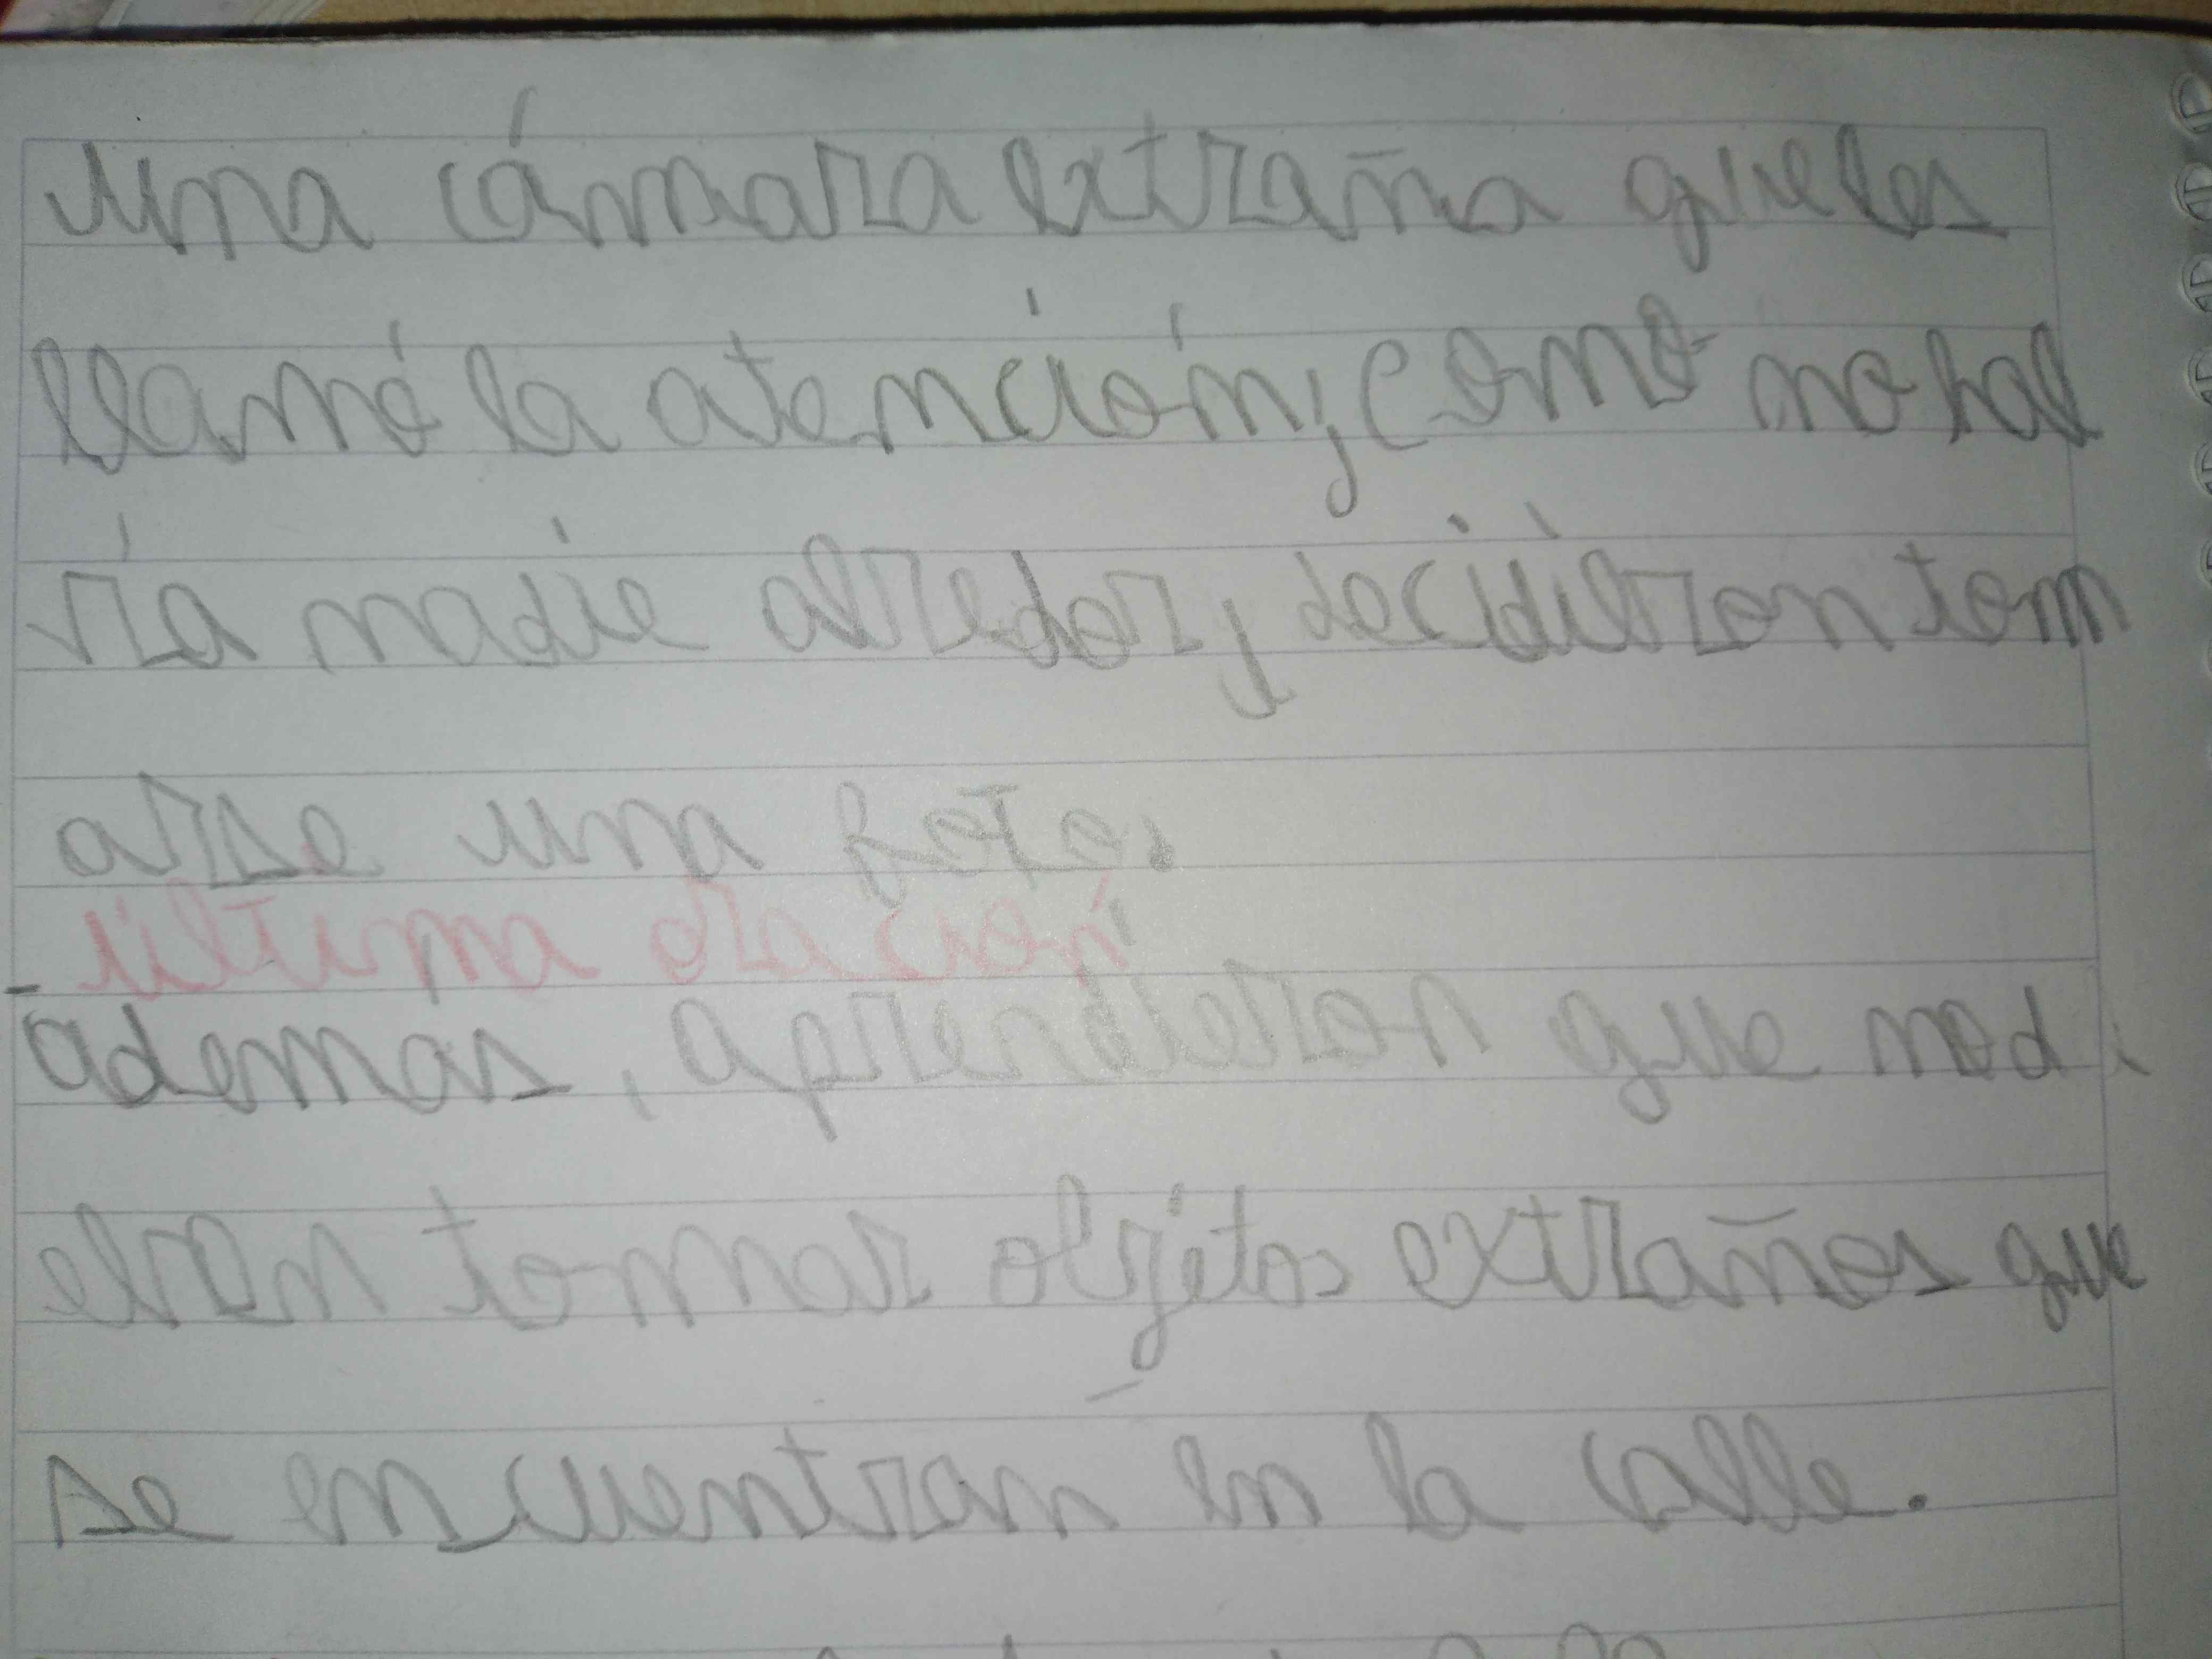 una cámara extraña que les
llamó la atención, como no hab
ía nadie alredor, decidieron tom
arse una foto.
última oración
- ademas, aprendieron que nod
eban tomar objetos extraños que
se encuentran en la calle.